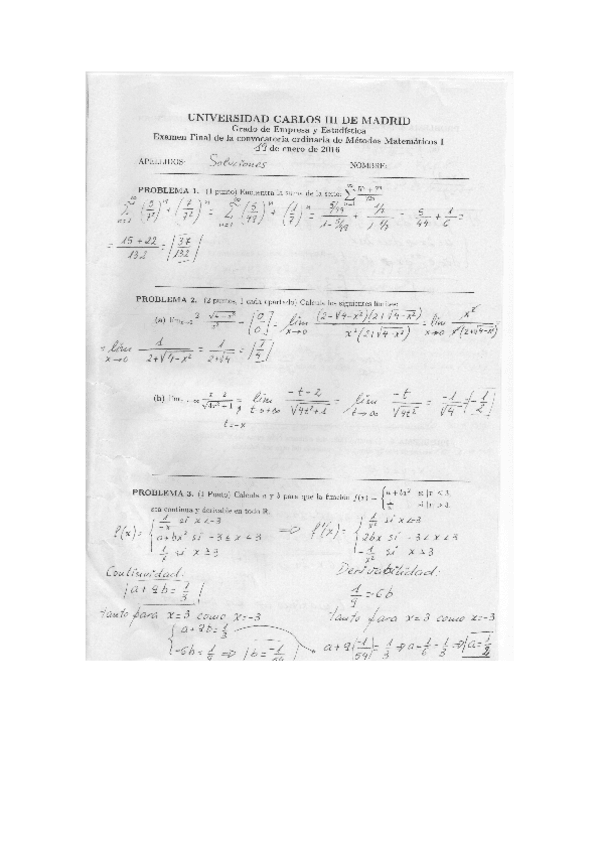 UNIVERSIDAD CARLOS III DE MADRID
Grado de Empresa y Estadística
Examen Final de la convocatoria ordinaria de Métodos Matemáticos I
19 de enero de 2016
APELLIDOS: Soluciones NOMBRE:
PROBLEMA 1. (1 punto) Encuentra la suma de la serie
∑ (5/7²)ⁿ + (7/7²)ⁿ = ∑ (5/49)ⁿ + (1/7)ⁿ = (5/49)/(1-5/49) + (1/7)/(1-1/7) = 5/44 + 1/6 =
= (15+22)/132 = 37/132
PROBLEMA 2. (2 puntos, 1 cada apartado) Calcula los siguientes límites:
(a) = [0/0] = lim x→0 (2-√4-x²)(2+√4-x²) / x²(2+√4-x²) = lim x→0 x² / x²(2+√4-x²)
= lim x→0 1/(2+√4-x²) = 1/(2+√4) = 1/4
(b) = lim t→+∞ (-t-2)/√4t²+1 = lim t→∞ -t/√4t² = -1/√4 = -1/2
t=-x
PROBLEMA 3. (1 Punto) Calcula a y b para que la función f(x) = { a + bx² si |x| < 3,
sea continua y derivable en todo R.
f(x) = { 1/-x si x<-3 ; a+bx² si -3≤x<3 ; 1/x si x≥3 => f'(x) = { 1/x² si x<-3 ; 2bx si -3<x<3 ; -1/x² si x>3
Continuidad: Derivabilidad:
a+9b = 1/3
tanto para x=3 como x=-3 tanto para x=3 como x=-3
a+9b = 1/3
=> b = -1/54 a+9(-1/54) = 1/3 => a - 1/6 = 1/3 =>